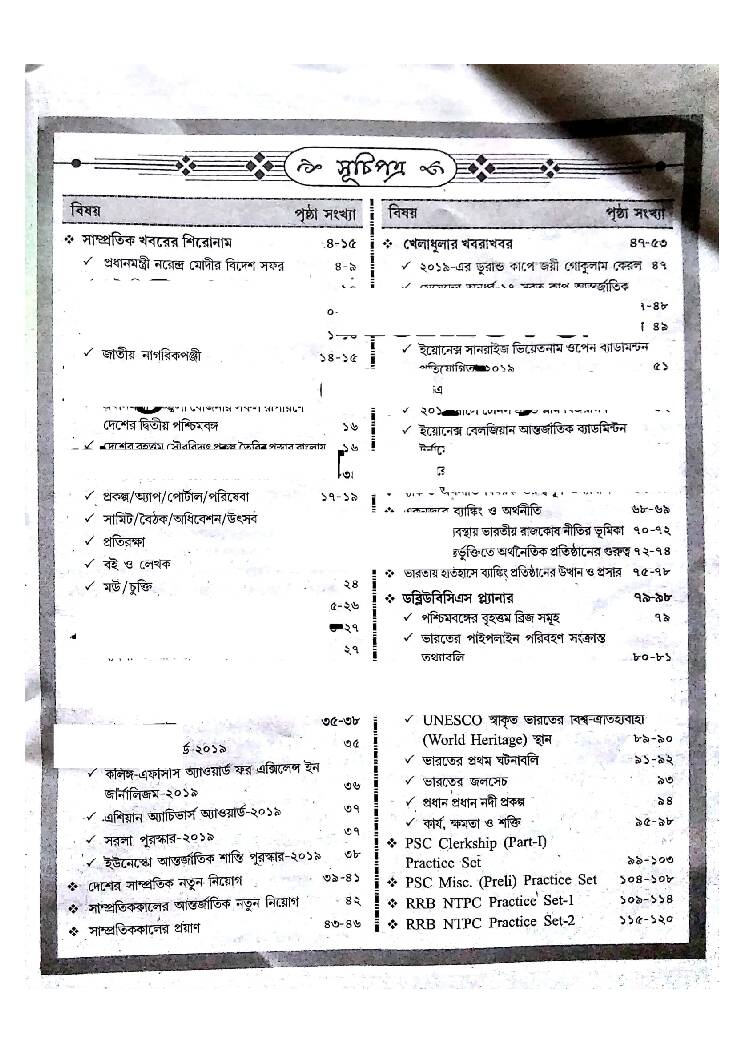 সূচিপত্র
বিষয় পৃষ্ঠা সংখ্যা
❖ সাম্প্রতিক খবরের শিরোনাম ৪-১৫
✓ প্রধানমন্ত্রী নরেন্দ্র মোদীর বিদেশ সফর ৪-৯
✓ জাতীয় নাগরিকপঞ্জী ১৪-১৫
দেশের দ্বিতীয় পশ্চিমবঙ্গ ১৬
✓ প্রকল্প/অ্যাপ/পোর্টাল/পরিষেবা ১৭-১৯
✓ সামিট/বৈঠক/অধিবেশন/উৎসব
✓ প্রতিরক্ষা
✓ বই ও লেখক
✓ মউ/চুক্তি ২৪
৫-২৬
২৭
২৭
৩৫-৩৮
২০১৯ ৩৫
✓ কলিঙ্গ-এফাসাস অ্যাওয়ার্ড ফর এক্সিলেন্স ইন
জার্নালিজম-২০১৯ ৩৬
✓ এশিয়ান অ্যাচিভার্স অ্যাওয়ার্ড-২০১৯ ৩৭
✓ সরলা পুরস্কার-২০১৯ ৩৭
✓ ইউনেস্কো আন্তর্জাতিক শান্তি পুরস্কার-২০১৯ ৩৮
❖ দেশের সাম্প্রতিক নতুন নিয়োগ ৩৯-৪১
❖ সাম্প্রতিককালের আন্তর্জাতিক নতুন নিয়োগ ৪২
❖ সাম্প্রতিককালের প্রয়াণ ৪৩-৪৬
বিষয় পৃষ্ঠা সংখ্যা
❖ খেলাধুলার খবরাখবর ৪৭-৫৩
✓ ২০১৯-এর ডুরান্ড কাপে জয়ী গোকুলাম কেরল ৪৭
আন্তর্জাতিক
১-৪৮
৪৯
✓ ইয়োনেক্স সানরাইজ ভিয়েতনাম ওপেন ব্যাডমিন্টন
২০১৯ ৫১
✓ ইয়োনেক্স বেলজিয়ান আন্তর্জাতিক ব্যাডমিন্টন
ব্যাঙ্কিং ও অর্থনীতি ৬৮-৬৯
ভারতীয় রাজকোষ নীতির ভূমিকা ৭০-৭২
অর্থনৈতিক প্রতিষ্ঠানের গুরুত্ব ৭২-৭৪
❖ ভারতীয় ইতিহাসে ব্যাঙ্কিং প্রতিষ্ঠানের উত্থান ও প্রসার ৭৫-৭৮
❖ ডব্লিউবিসিএস প্ল্যানার ৭৯-৯৮
✓ পশ্চিমবঙ্গের বৃহত্তম ব্রিজ সমূহ ৭৯
✓ ভারতের পাইপলাইন পরিবহণ সংক্রান্ত
তথ্যাবলি ৮০-৮১
✓ UNESCO স্বীকৃত ভারতের বিশ্ব-ঐতিহ্যবাহী
(World Heritage) স্থান ৮৯-৯০
✓ ভারতের প্রথম ঘটনাবলি ৯১-৯২
✓ ভারতের জলসেচ ৯৩
✓ প্রধান প্রধান নদী প্রকল্প ৯৪
✓ কার্য, ক্ষমতা ও শক্তি ৯৫-৯৮
❖ PSC Clerkship (Part-I)
Practice Set ৯৯-১০৩
❖ PSC Misc. (Preli) Practice Set ১০৪-১০৮
❖ RRB NTPC Practice Set-1 ১০৯-১১৪
❖ RRB NTPC Practice Set-2 ১১৫-১২০